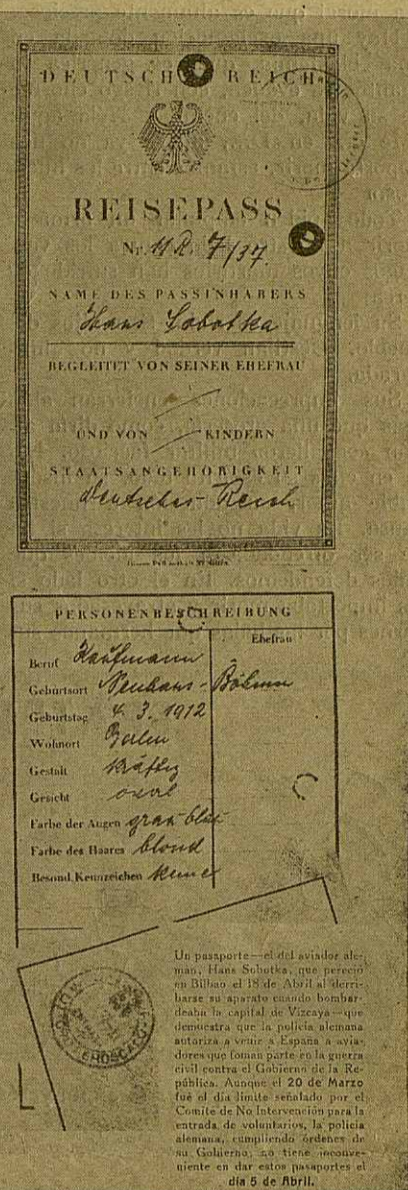 DEUTSCHES REICH
REISEPASS
Nr. 11 R 7/37
NAME DES PASSINHABERS
Hans Sobotka
BEGLEITET VON SEINER EHEFRAU
UND VON KINDERN
STAATSANGEHÖRIGKEIT
Deutsches Reich
PERSONENBESCHREIBUNG
Ehefrau
Beruf Kaufmann
Geburtsort Neuhaus - Böhmen
Geburtstag 4. 3. 1912
Wohnort Berlin
Gestalt kräftig
Gesicht oval
Farbe der Augen grau-blau
Farbe des Haares blond
Besond. Kennzeichen keine
Un pasaporte—el del aviador ale-
mán, Hans Sobotka, que pereció
en Bilbao el 18 de Abril al derri-
barse su aparato cuando bombar-
deaba la capital de Vizcaya—que
demuestra que la policía alemana
autoriza a venir a España a avia-
dores que toman parte en la guerra
civil contra el Gobierno de la Re-
pública. Aunque el 20 de Marzo
fué el día límite señalado por el
Comité de No Intervención para la
entrada de voluntarios, la policía
alemana, cumpliendo órdenes de
su Gobierno, no tiene inconve-
niente en dar estos pasaportes el
día 5 de Abril.